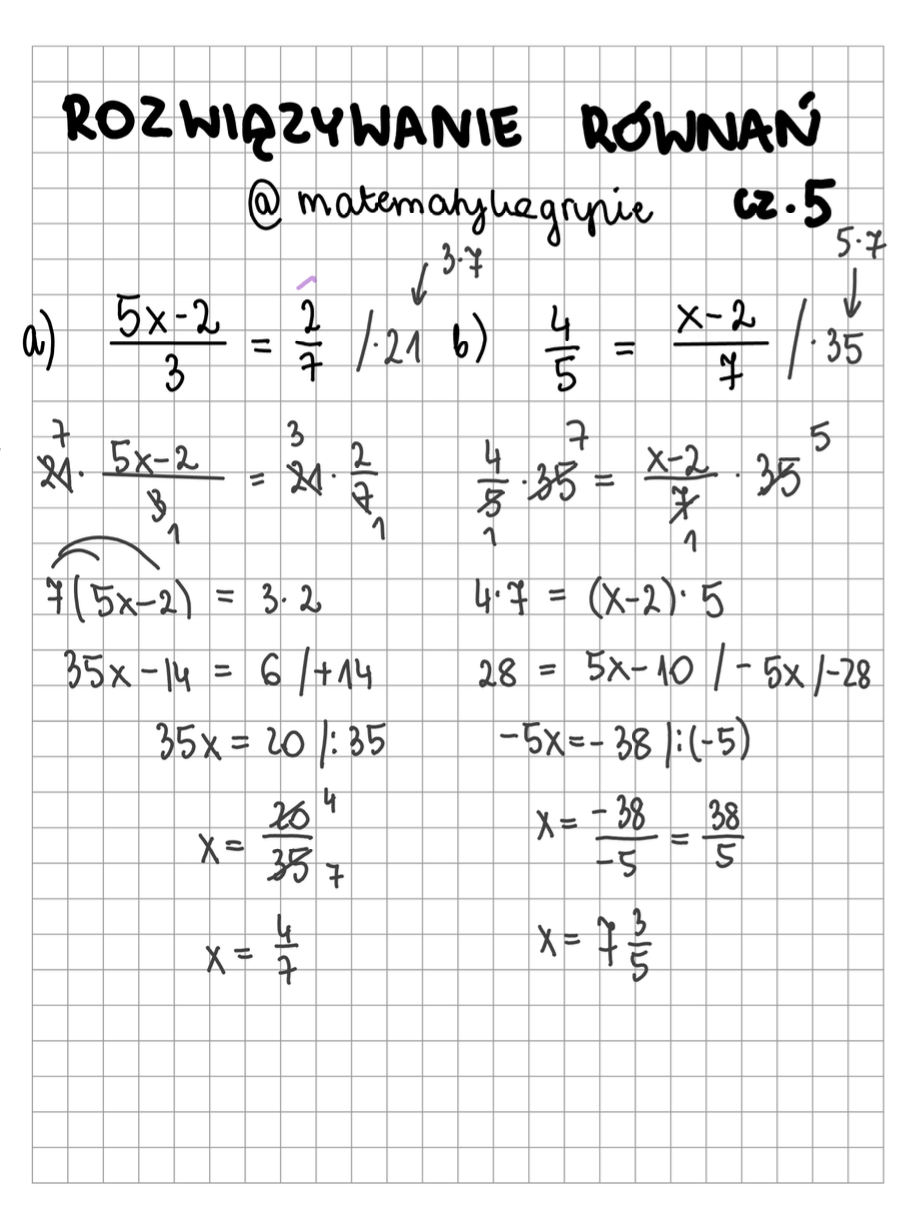 ROZWIĄZYWANIE RÓWNAŃ
@matematykagrypie cz.5
3·7
5·7
a) \frac{5x-2}{3} = \frac{2}{7} /·21
7 3
21· \frac{5x-2}{3} = 21· \frac{2}{7}
1 1
7(5x-2) = 3·2
35x-14 = 6 /+14
35x = 20 /:35
x = \frac{20}{35} 4 7
x = \frac{4}{7}
b) \frac{4}{5} = \frac{x-2}{7} /·35
7 5
\frac{4}{5} ·35 = \frac{x-2}{7} · 35
1 1
4·7 = (x-2)·5
28 = 5x-10 /-5x /-28
-5x=-38 /:(-5)
x = \frac{-38}{-5} = \frac{38}{5}
x = 7\frac{3}{5}